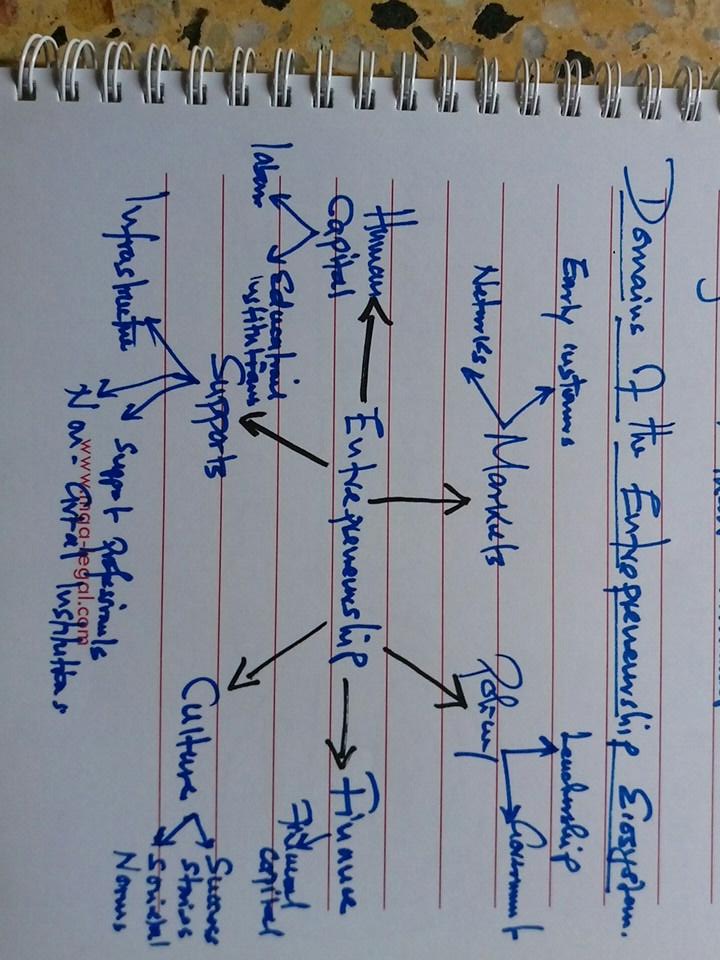 Domains of the Entrepreneurship Ecosystem.
Early customers
Networks
Markets
Leadership
Government
Policy
Human
Capital
labour
Educational
institutions
Entrepreneurship
Finance
Financial
capital
Supports
Infrastructure
Support Professionals
Non-Govtal Institutions
Culture
Success
Stories
Societal
Norms
www.maa-legal.com